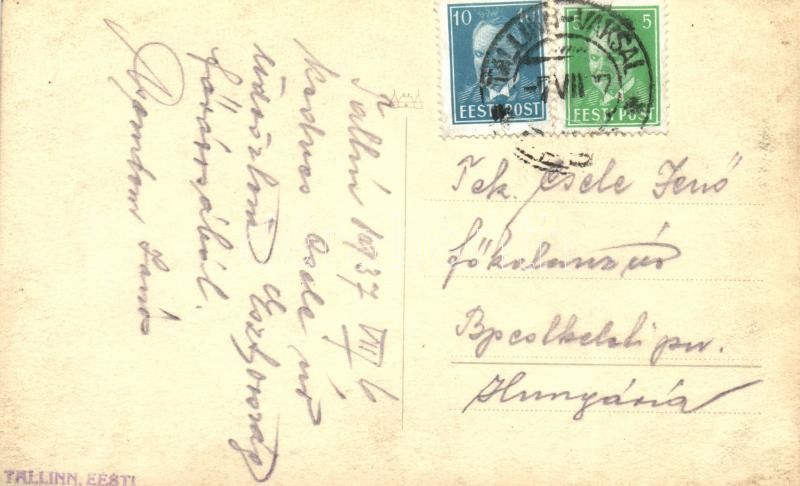 10 10
EESTI POST
5 5
EESTI POST
TALLINN-VAKSAL
-7 VIII 37
Tallin 1937 VIII/6
Kedves Csele úr
üdvözlöm Esztország
fővárosából.
János
Tek. Csele Jenő
főkalauz úr
Bpestkeleti pu.
Hungária
TALLINN, EESTI